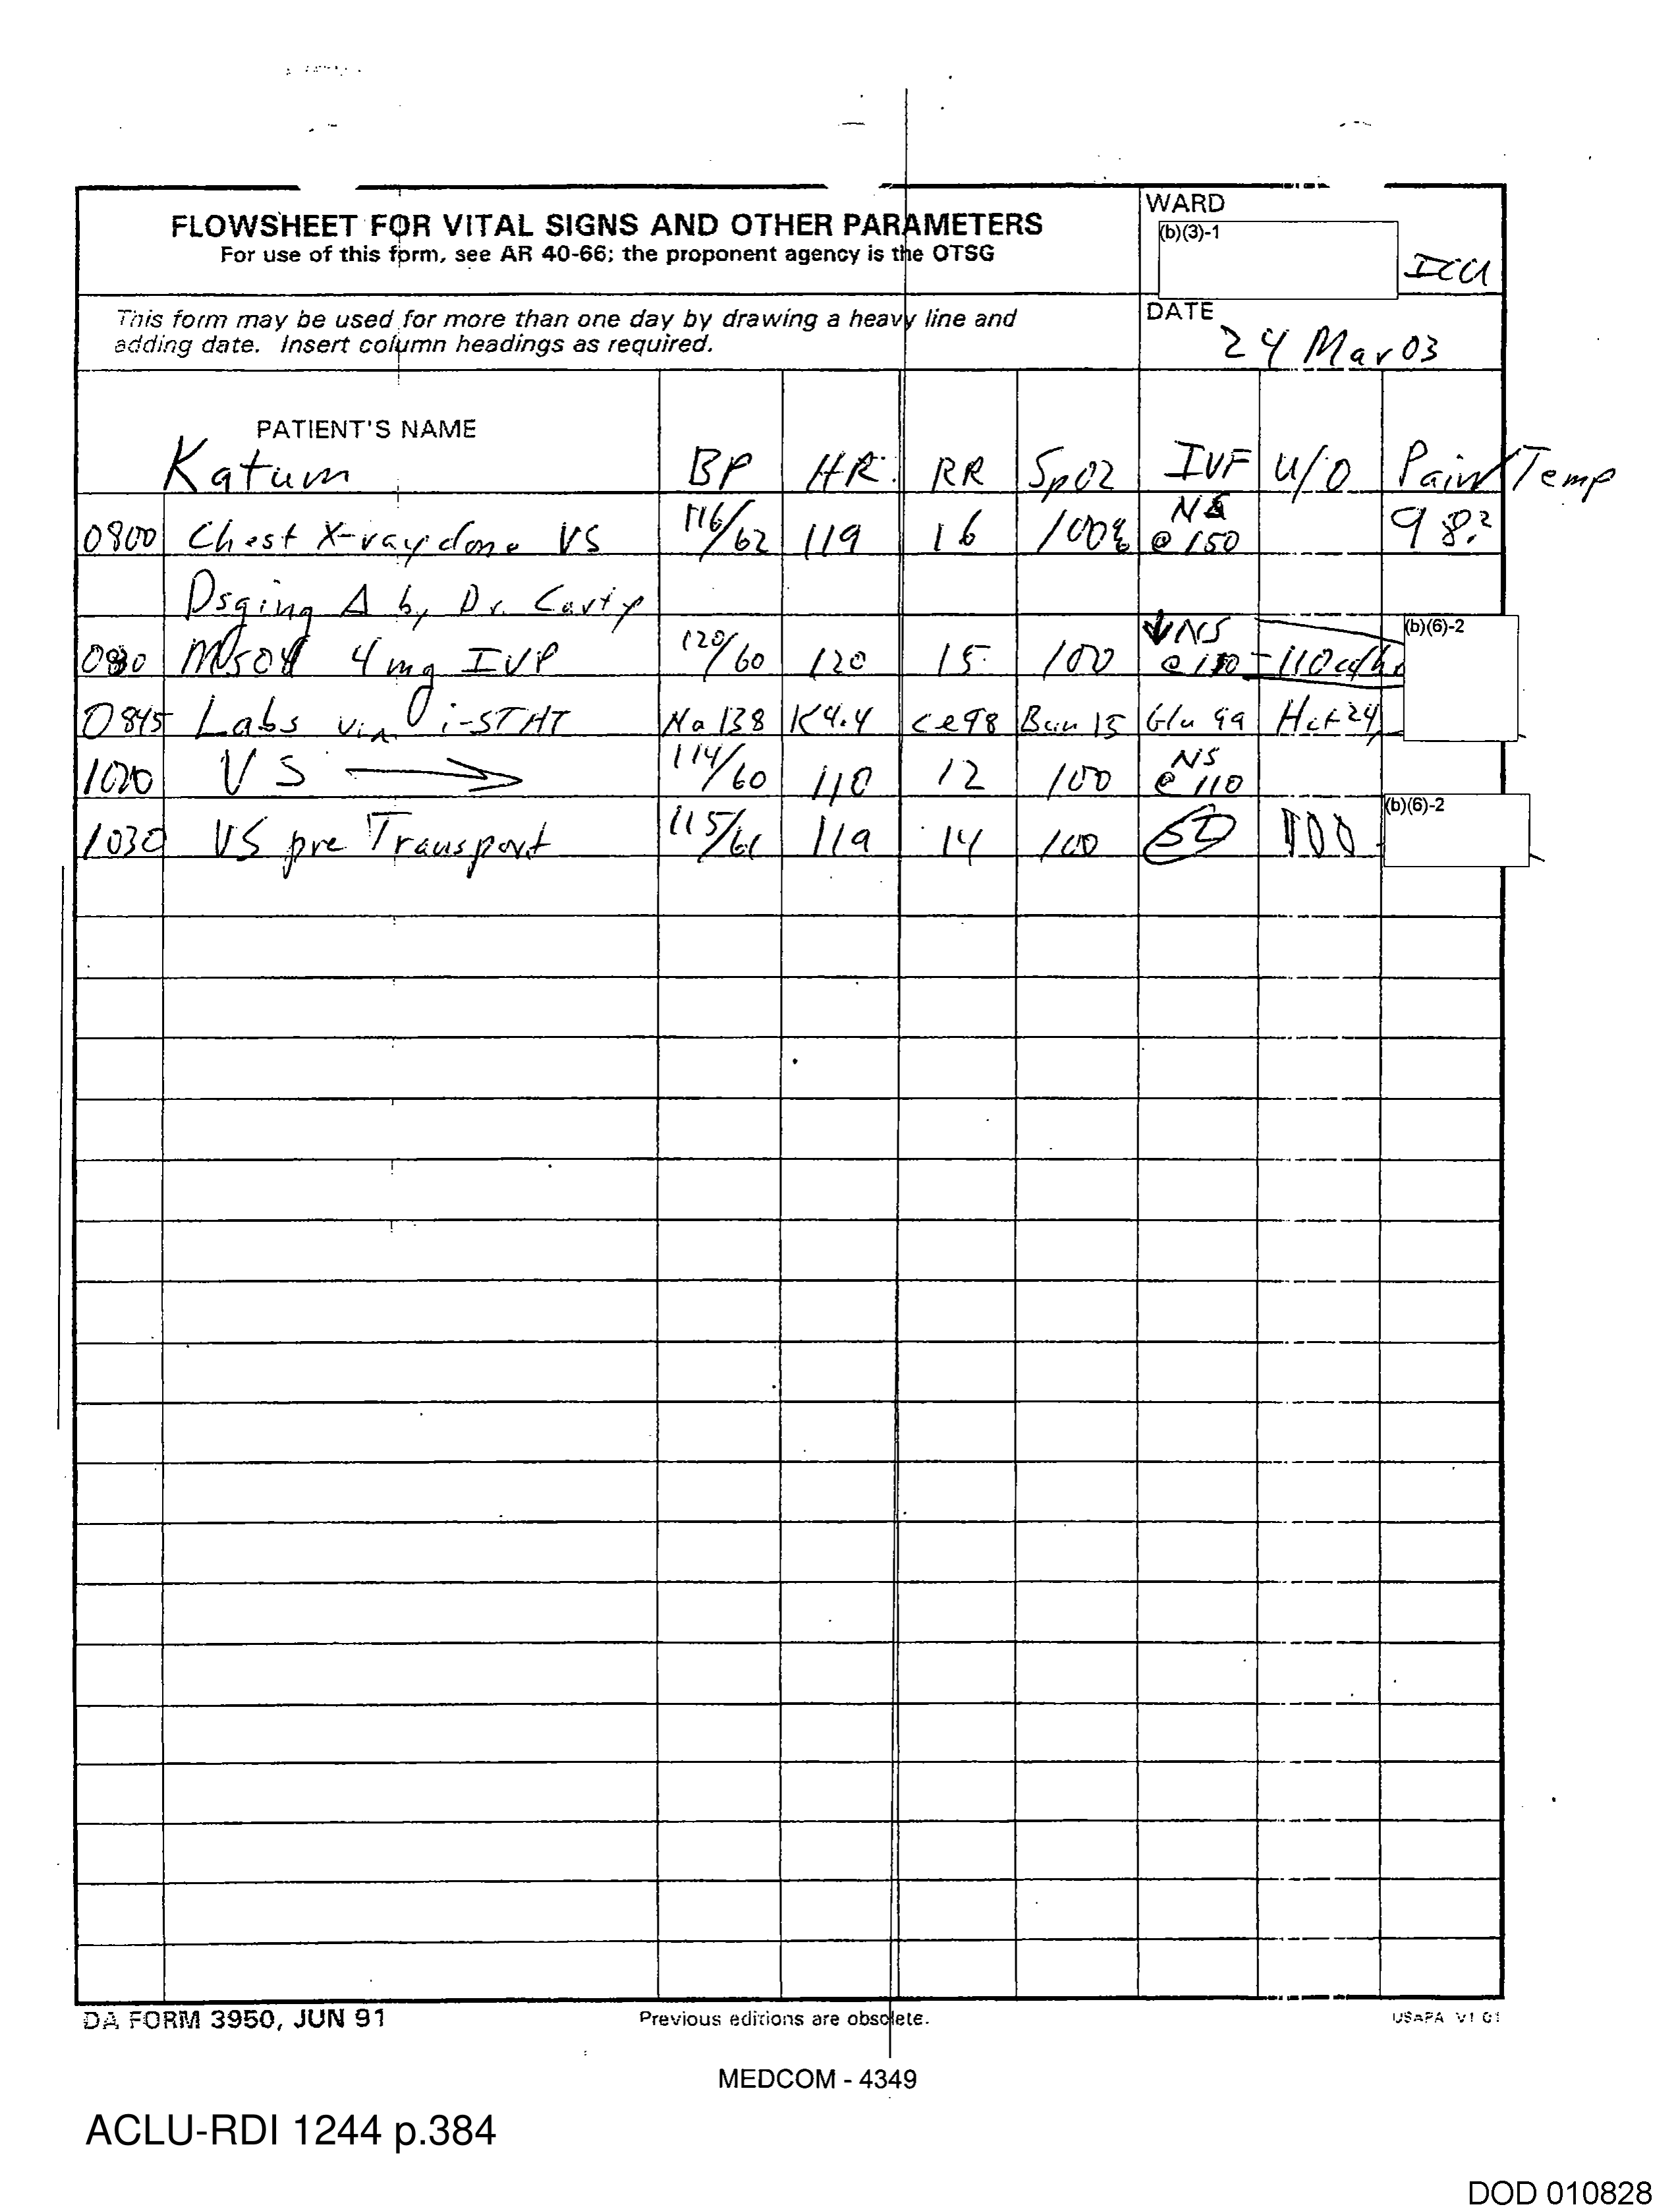 FLOWSHEET FOR VITAL SIGNS AND OTHER PARAMETERS
For use of this form, see AR 40-66; the proponent agency is the OTSG
WARD
(b)(3)-1
ICU
This form may be used for more than one day by drawing a heavy line and
adding date. Insert column headings as required.
DATE
24 Mar 03
PATIENT'S NAME
Katum BP HR RR SpO2 IVF U/O Pain/Temp
0800 Chest X-ray done VS 116/62 119 16 100% NS @ 150 98.2
Dsging Δ by Dr. Carty
MSO4 4mg IVP 120/60 120 15 100 ↓NS - 110cc/hr (b)(6)-2
0845 Labs via i-STAT Na 138 K4.4 98 Bun 15 Glu 99 Hct 24
1020 VS → 114/60 110 12 100 NS @ 110
1030 VS pre Transport 115/61 119 14 100 (b)(6)-2
DA FORM 3950, JUN 91
Previous editions are obsolete.
USAPA V1.01
MEDCOM - 4349
ACLU-RDI 1244 p.384
DOD 010828